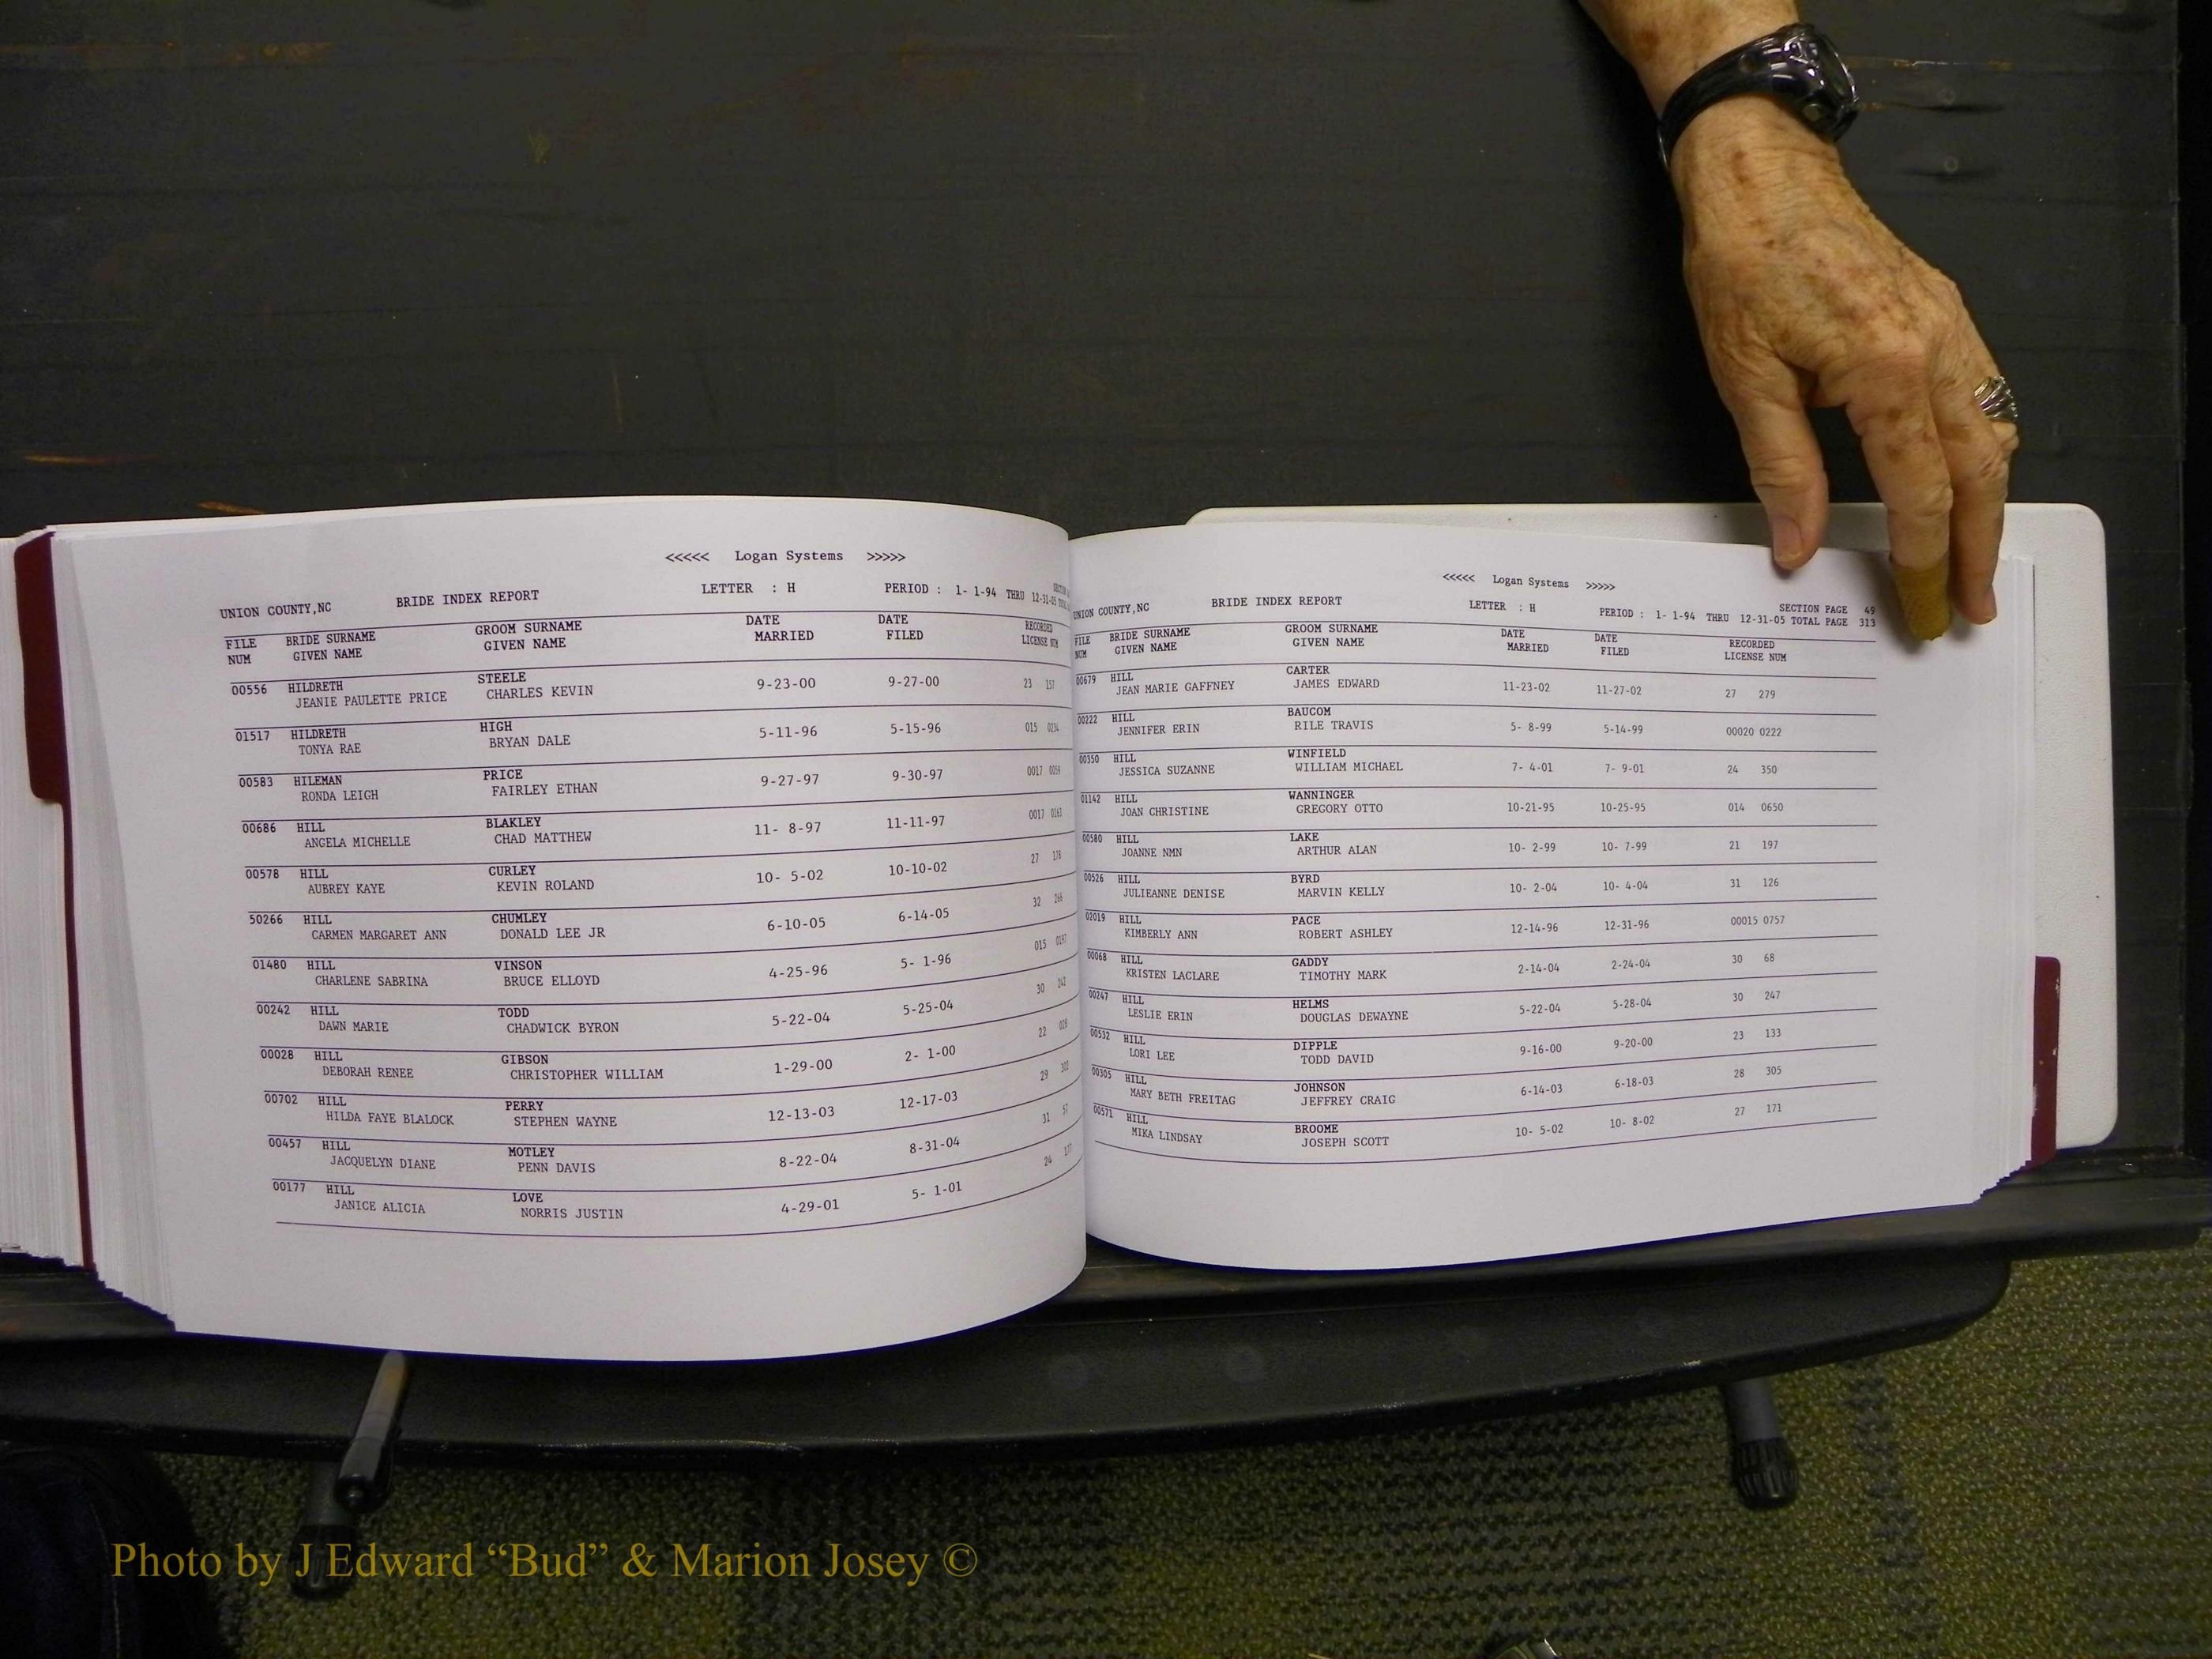 <<<<< Logan Systems >>>>>
UNION COUNTY,NC BRIDE INDEX REPORT LETTER : H PERIOD : 1- 1-94 THRU 12-31-05
FILE BRIDE SURNAME GROOM SURNAME DATE DATE RECORDED
NUM GIVEN NAME GIVEN NAME MARRIED FILED LICENSE NUM
00556 HILDRETH STEELE 9-23-00 9-27-00 23 157
JEANIE PAULETTE PRICE CHARLES KEVIN
01517 HILDRETH HIGH 5-11-96 5-15-96 015 0234
TONYA RAE BRYAN DALE
00583 HILEMAN PRICE 9-27-97 9-30-97 0017
RONDA LEIGH FAIRLEY ETHAN
00686 HILL BLAKLEY 11- 8-97 11-11-97 0017
ANGELA MICHELLE CHAD MATTHEW
00578 HILL CURLEY 10- 5-02 10-10-02 27
AUBREY KAYE KEVIN ROLAND
50266 HILL CHUMLEY 6-10-05 6-14-05 32 266
CARMEN MARGARET ANN DONALD LEE JR
01480 HILL VINSON 4-25-96 5- 1-96 015
CHARLENE SABRINA BRUCE ELLOYD
00242 HILL TODD 5-22-04 5-25-04 30 242
DAWN MARIE CHADWICK BYRON
00028 HILL GIBSON 1-29-00 2- 1-00 22 028
DEBORAH RENEE CHRISTOPHER WILLIAM
00702 HILL PERRY 12-13-03 12-17-03 29 302
HILDA FAYE BLALOCK STEPHEN WAYNE
00457 HILL MOTLEY 8-22-04 8-31-04 31 57
JACQUELYN DIANE PENN DAVIS
00177 HILL LOVE 4-29-01 5- 1-01 24 177
JANICE ALICIA NORRIS JUSTIN
<<<<< Logan Systems >>>>>
UNION COUNTY,NC BRIDE INDEX REPORT LETTER : H SECTION PAGE 49
PERIOD : 1- 1-94 THRU 12-31-05 TOTAL PAGE 313
FILE BRIDE SURNAME GROOM SURNAME DATE DATE RECORDED
NUM GIVEN NAME GIVEN NAME MARRIED FILED LICENSE NUM
00679 HILL CARTER 11-23-02 11-27-02 27 279
JEAN MARIE GAFFNEY JAMES EDWARD
00222 HILL BAUCOM 5- 8-99 5-14-99 00020 0222
JENNIFER ERIN RILE TRAVIS
00350 HILL WINFIELD 7- 4-01 7- 9-01 24 350
JESSICA SUZANNE WILLIAM MICHAEL
01142 HILL WANNINGER 10-21-95 10-25-95 014 0650
JOAN CHRISTINE GREGORY OTTO
00580 HILL LAKE 10- 2-99 10- 7-99 21 197
JOANNE NMN ARTHUR ALAN
00526 HILL BYRD 10- 2-04 10- 4-04 31 126
JULIEANNE DENISE MARVIN KELLY
02019 HILL PACE 12-14-96 12-31-96 00015 0757
KIMBERLY ANN ROBERT ASHLEY
00068 HILL GADDY 2-14-04 2-24-04 30 68
KRISTEN LACLARE TIMOTHY MARK
00247 HILL HELMS 5-22-04 5-28-04 30 247
LESLIE ERIN DOUGLAS DEWAYNE
00532 HILL DIPPLE 9-16-00 9-20-00 23 133
LORI LEE TODD DAVID
00305 HILL JOHNSON 6-14-03 6-18-03 28 305
MARY BETH FREITAG JEFFREY CRAIG
00571 HILL BROOME 10- 5-02 10- 8-02 27 171
MIKA LINDSAY JOSEPH SCOTT
Photo by J Edward “Bud” & Marion Josey ©